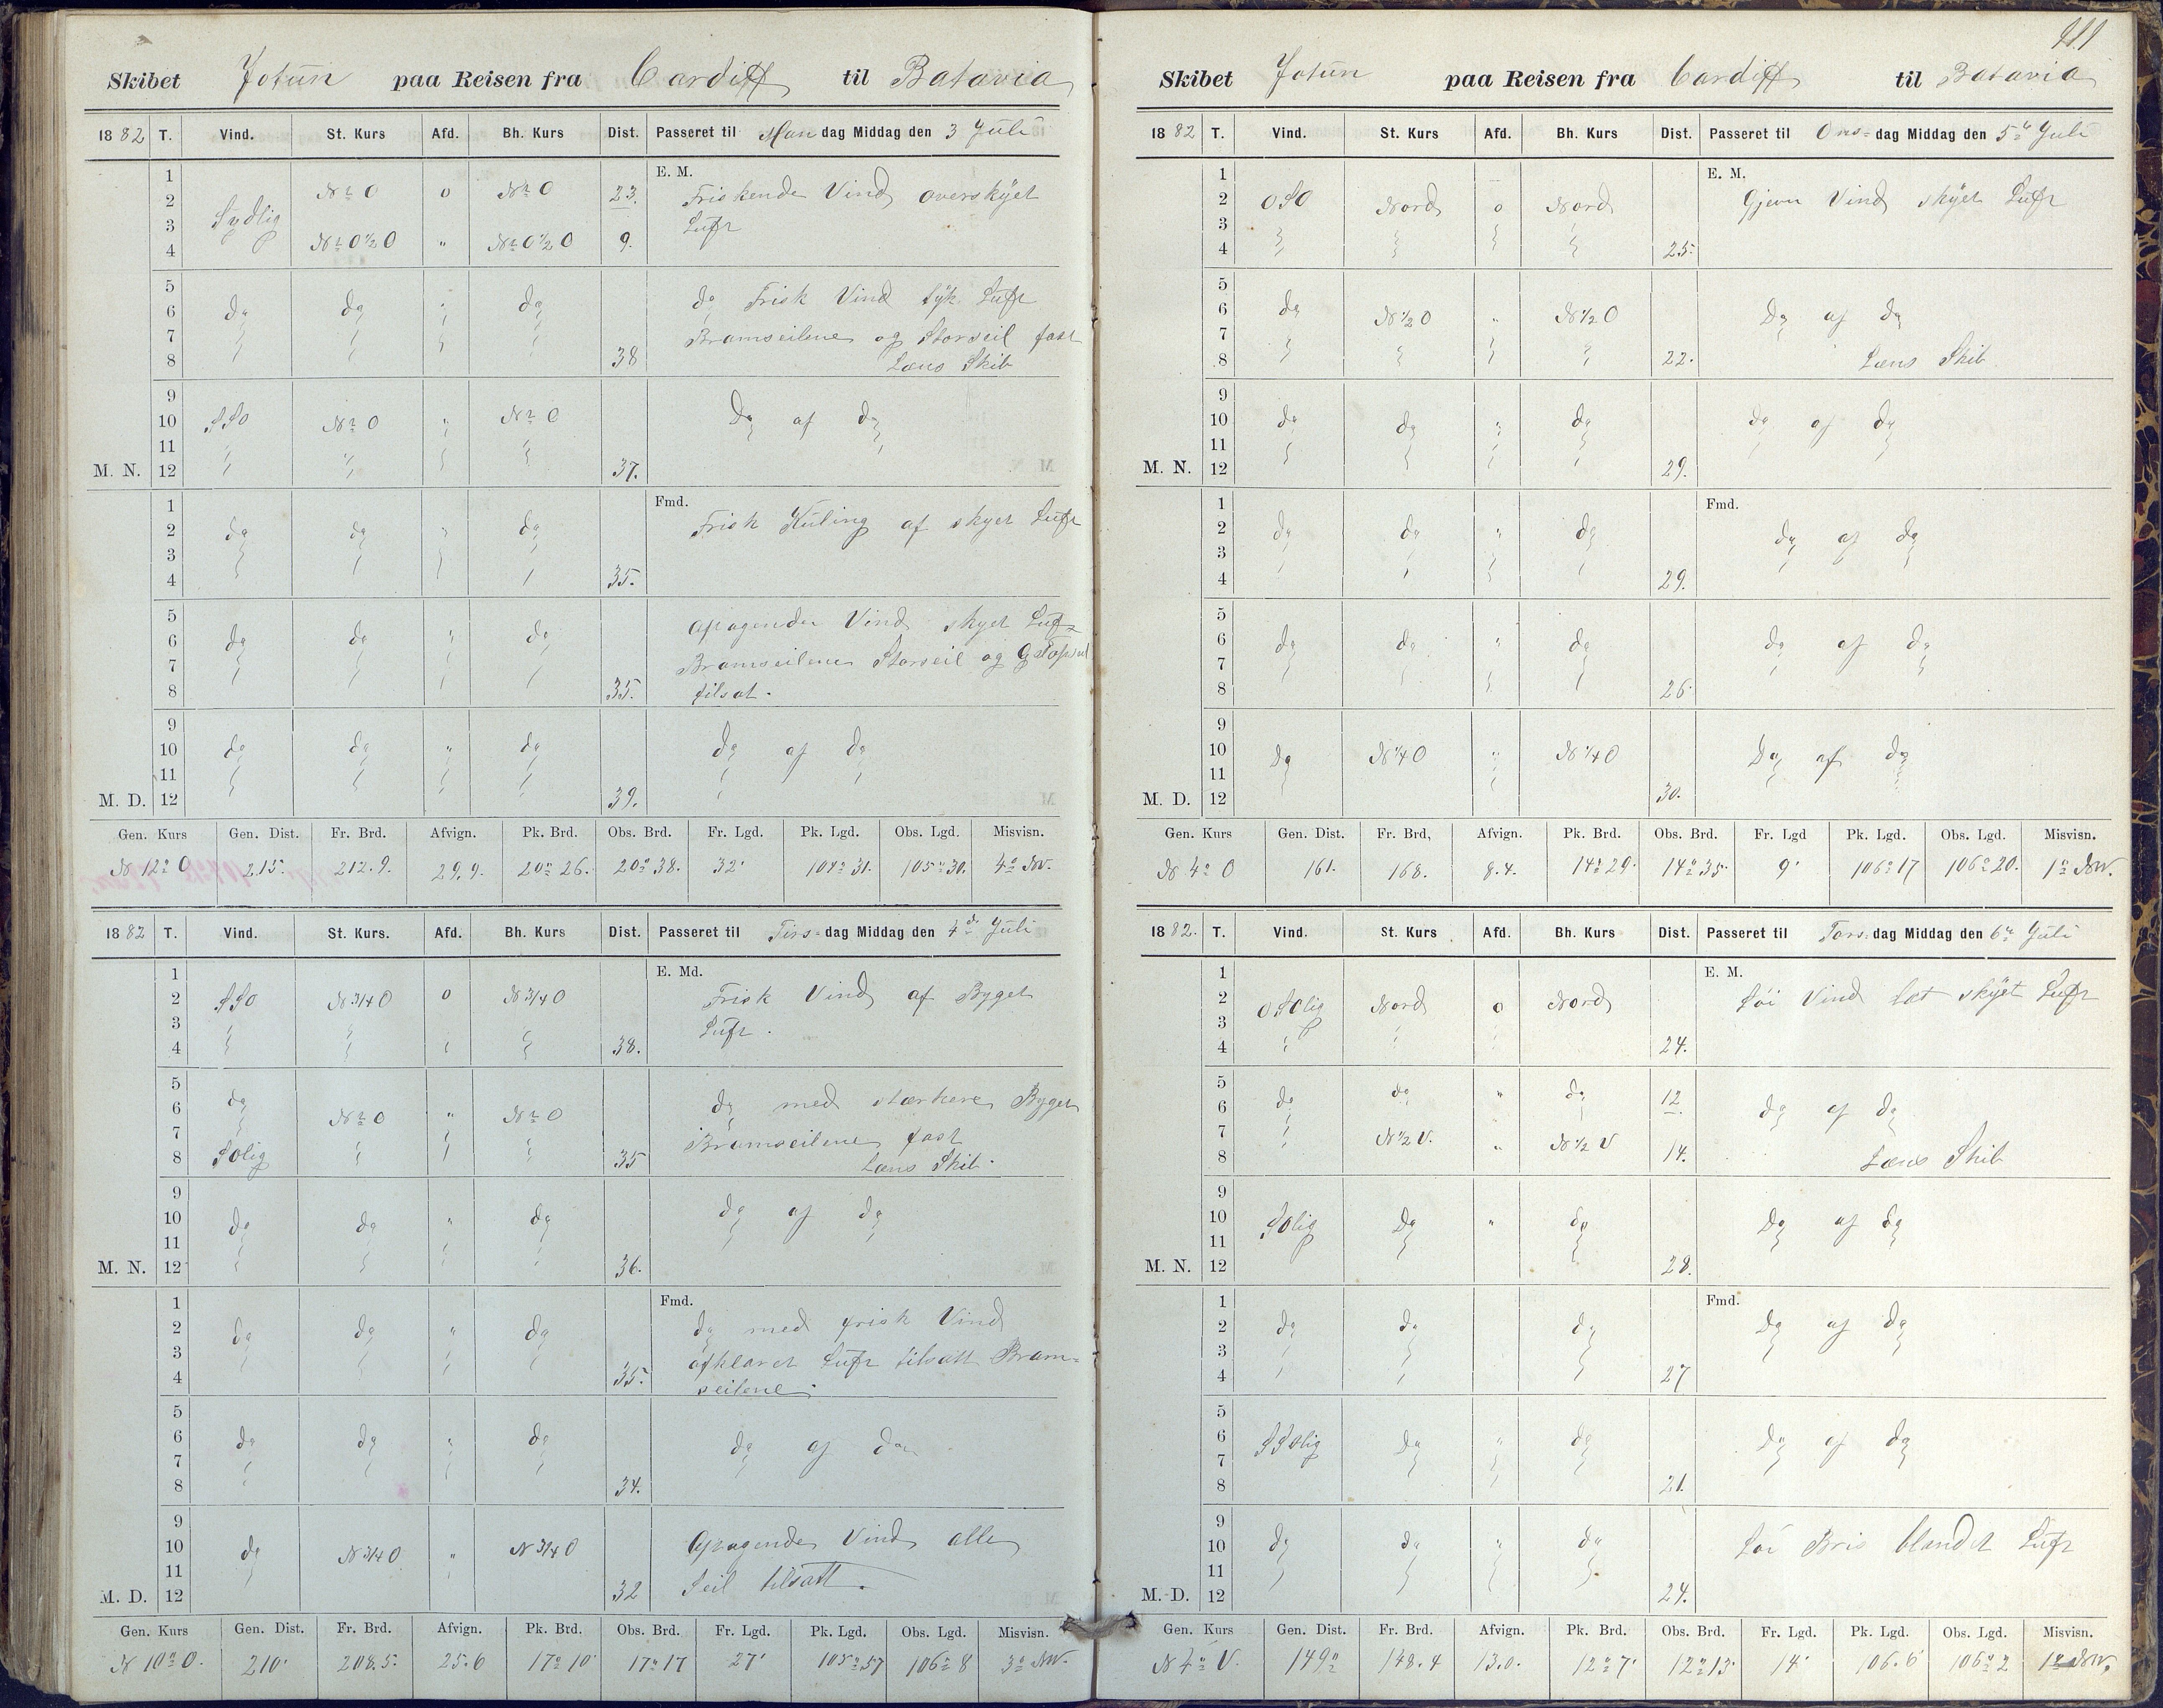 Skibet Jotun paa Reisen fra Cardiff til Batavia
1882 T. Vind. St. Kurs Afd. Bh. Kurs Dist. Passeret til Mandag Middag den 3 Juli
E. M.
1 2 3 4 Sydlig N t O o N t O 23. Friskende Vind overskÿet
Luft
N t O ½ O " N t O ½ O 9.
5 6 7 8 do do " do 38 do Frisk Vind tÿk Luft
Bramseilene og Storseil fast
Læns Skib
9 10 11 12 M. N. SSO N t O " N t O 37. do af do
Fmd.
1 2 3 4 do do " do 35. Frisk Kuling af skyet Luft
5 6 7 8 do do " do 35. Aftagende Vind skyet Luft
Bramseilene Storseil og
tilsat.
9 10 11 12 M. D. do do " do 39. do af do
Gen. Kurs Gen. Dist. Fr. Brd. Afvign. Pk. Brd. Obs. Brd. Fr. Lgd. Pk. Lgd. Obs. Lgd. Misvisn.
N 12° O 215. 212.9. 29.9. 20° 26. 20° 38. 32' 104° 31. 105° 30. 4° NW.
1882 T. Vind. St. Kurs. Afd. Bh. Kurs Dist. Passeret til Tirs-dag Middag den 4de Juli
E. Md.
1 2 3 4 SSO N 3/4 O o N 3/4 O 38. Frisk Vind af Byget
Luft.
5 6 7 8 do N t O " N t O 35 do med stærkere Byger
SOlig Bramseilene fast
Læns Skib.
9 10 11 12 M. N. do do " do 36. do af do
Fmd.
1 2 3 4 do do " do 35. do med frisk Vind
afklaret Luft tilsatt Bram-
seilene.
5 6 7 8 do do " do 34. do af do
9 10 11 12 M. D. do N 3/4 O " N 3/4 O 32 Aftagende Vind alle
Seil tilsatt.
Gen. Kurs Gen. Dist. Fr. Brd. Afvign. Pk. Brd. Obs. Brd. Fr. Lgd. Pk. Lgd. Obs. Lgd. Misvisn.
N 10° O. 210' 208.5. 25.6 17° 10' 17° 17 27' 105° 57 106° 8 3° NW.
111
Skibet Jotun paa Reisen fra Cardiff til Batavia
1882 T. Vind. St. Kurs Afd. Bh. Kurs Dist. Passeret til Ons-dag Middag den 5te Juli
E. M.
1 2 3 4 OSO Nord o Nord 25. Gjevn Vind skÿet Luft
5 6 7 8 do N ½ O " N ½ O 22. Do af do
Læns Skib
9 10 11 12 M. N. do do " do 29. do af do
Fmd.
1 2 3 4 do do " do 29. do af do
5 6 7 8 do do " do 26. do af do
9 10 11 12 M. D. do N ¼ O " N ¼ O 30. Do af do
Gen. Kurs Gen. Dist. Fr. Brd, Afvign. Pk. Brd. Obs. Brd. Fr. Lgd Pk. Lgd. Obs. Lgd. Misvisn.
N 4° O 161. 168. 8.4. 14° 29. 14° 35. 9' 106° 17 106° 20. 1° NW.
1882. T. Vind. St. Kurs Afd. Bh. Kurs Dist. Passeret til Tors.dag Middag den 6te Juli
E. M.
1 2 3 4 OSOlig Nord o Nord 24. Løi Vind let skÿet Luft
5 6 7 8 do do " do 12 do af do
N ½ V. " N ½ V 14. Læns Skib
9 10 11 12 M. N. SOlig Do " do 28. Do af do
Fmd.
1 2 3 4 do do do 27 Do af do
5 6 7 8 SSOlig Do " do 21. Do af do
9 10 11 12 M. D. do do " do 24. Løi Bris blandet Luft
Gen. Kurs Gen. Dist. Fr. Brd. Afvign. Pk. Brd. Obs. Brd. Fr. Lgd. Pk. Lgd. Obs. Lgd. Misvisn.
N 4° V. 149 148.4 13.0. 12° 7' 12° 13. 14' 106.6 106° 2 1° NW.